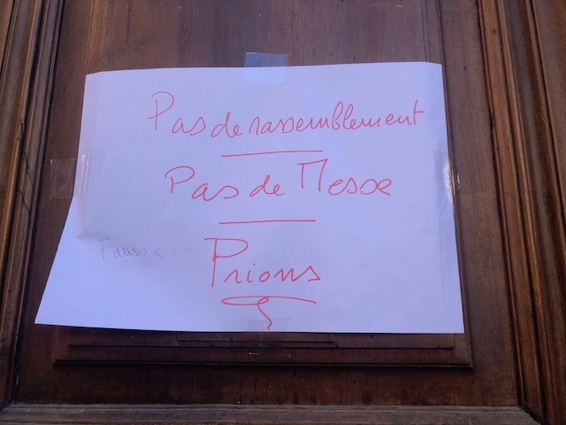 Pas de rassemblement
Pas de Messe
Prions